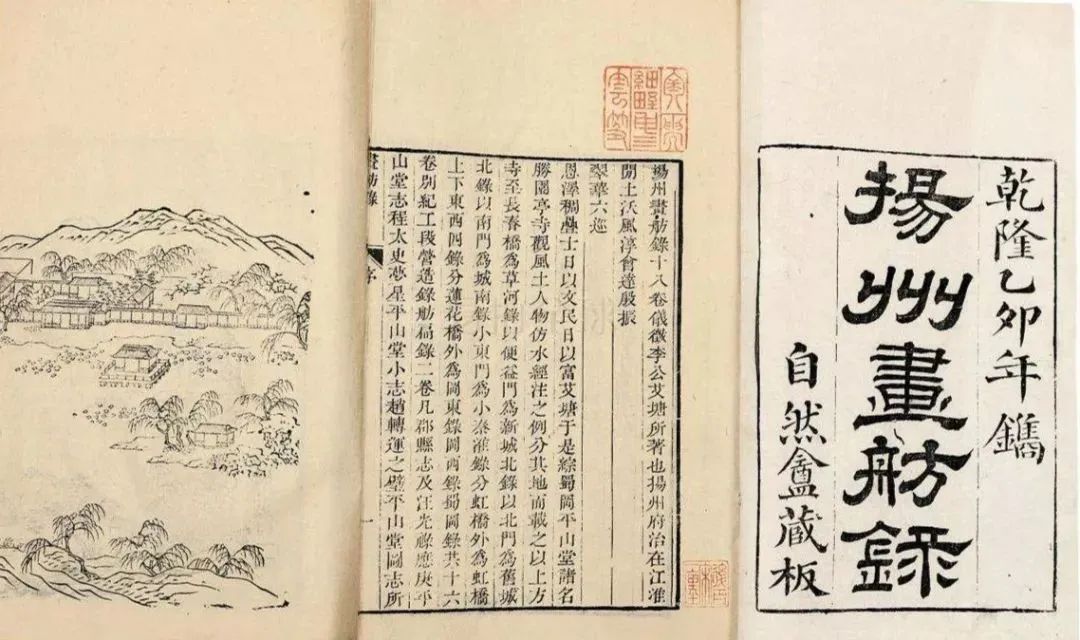 乾隆乙卯年鐫
揚州畫舫錄
自然盦蔵板
揚州畫舫錄十八卷儀徵李公艾塘所著也揚州府治在江淮
間土沃風淳會達殷振
翠華六巡
恩澤稠疊士日以文民日以富艾塘于是綜蜀岡平山堂諸名
勝園亭寺觀風土人物仿水經注之例分其地而載之以上方
寺至長春橋為草河錄以便益門為新城北錄以北門為舊城
北錄以南門為城南錄小東門為小秦淮錄分虹橋外為虹橋
上下東西四錄分蓮花橋外為岡東錄岡西錄蜀岡錄共十六
卷別紀工段營造錄舫扁錄二卷凡郡縣志及汪光祿應庚平
山堂志程太史夢星平山堂小志趙轉運之壁平山堂圖志所
畫舫錄 序 一